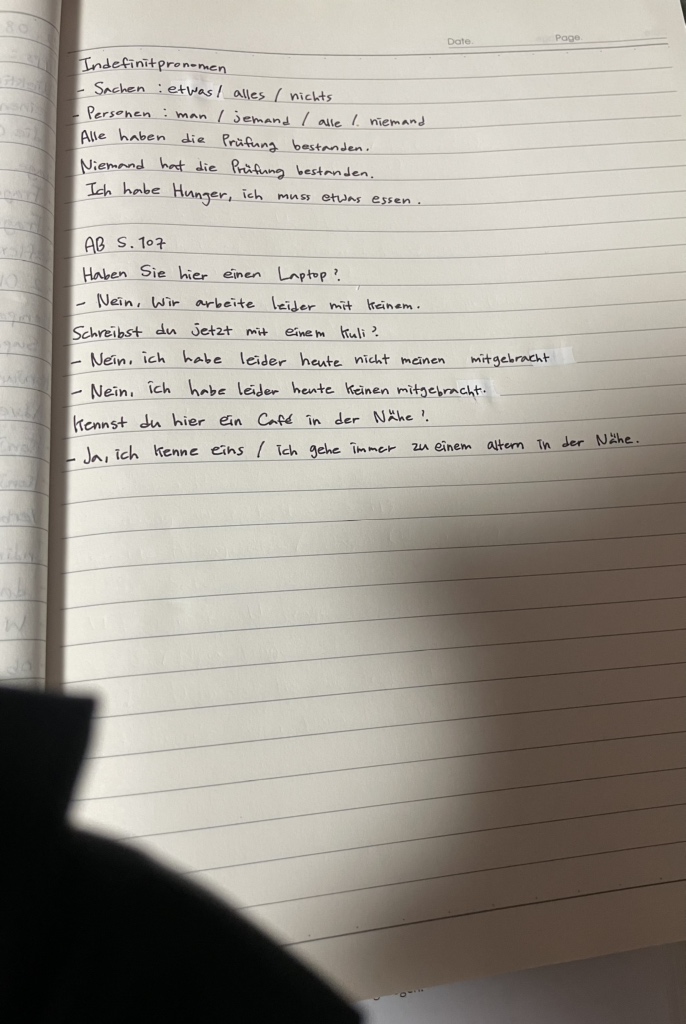 Date.
Page
Indefinitpronomen
- Sachen : etwas / alles / nichts
- Personen : man / jemand / alle / niemand
Alle haben die Prüfung bestanden.
Niemand hat die Prüfung bestanden.
Ich habe Hunger, ich muss etwas essen.
AB S. 107
Haben Sie hier einen Laptop?
- Nein, Wir arbeite leider mit keinem.
Schreibst du jetzt mit einem Kuli?
- Nein, ich habe leider heute nicht meinen mitgebracht
- Nein, ich habe leider heute keinen mitgebracht.
Kennst du hier ein Café in der Nähe?
- Ja, ich kenne eins / ich gehe immer zu einem altern in der Nähe.